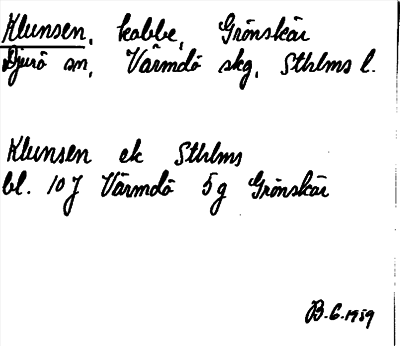 Klunsen, kobbe, Grönskär
Djurö sn, Värmdö skg, Sthlms l.
Klunsen ek Sthlms
bl. 10 J Värmdö 5 g Grönskär
B.G. 1959